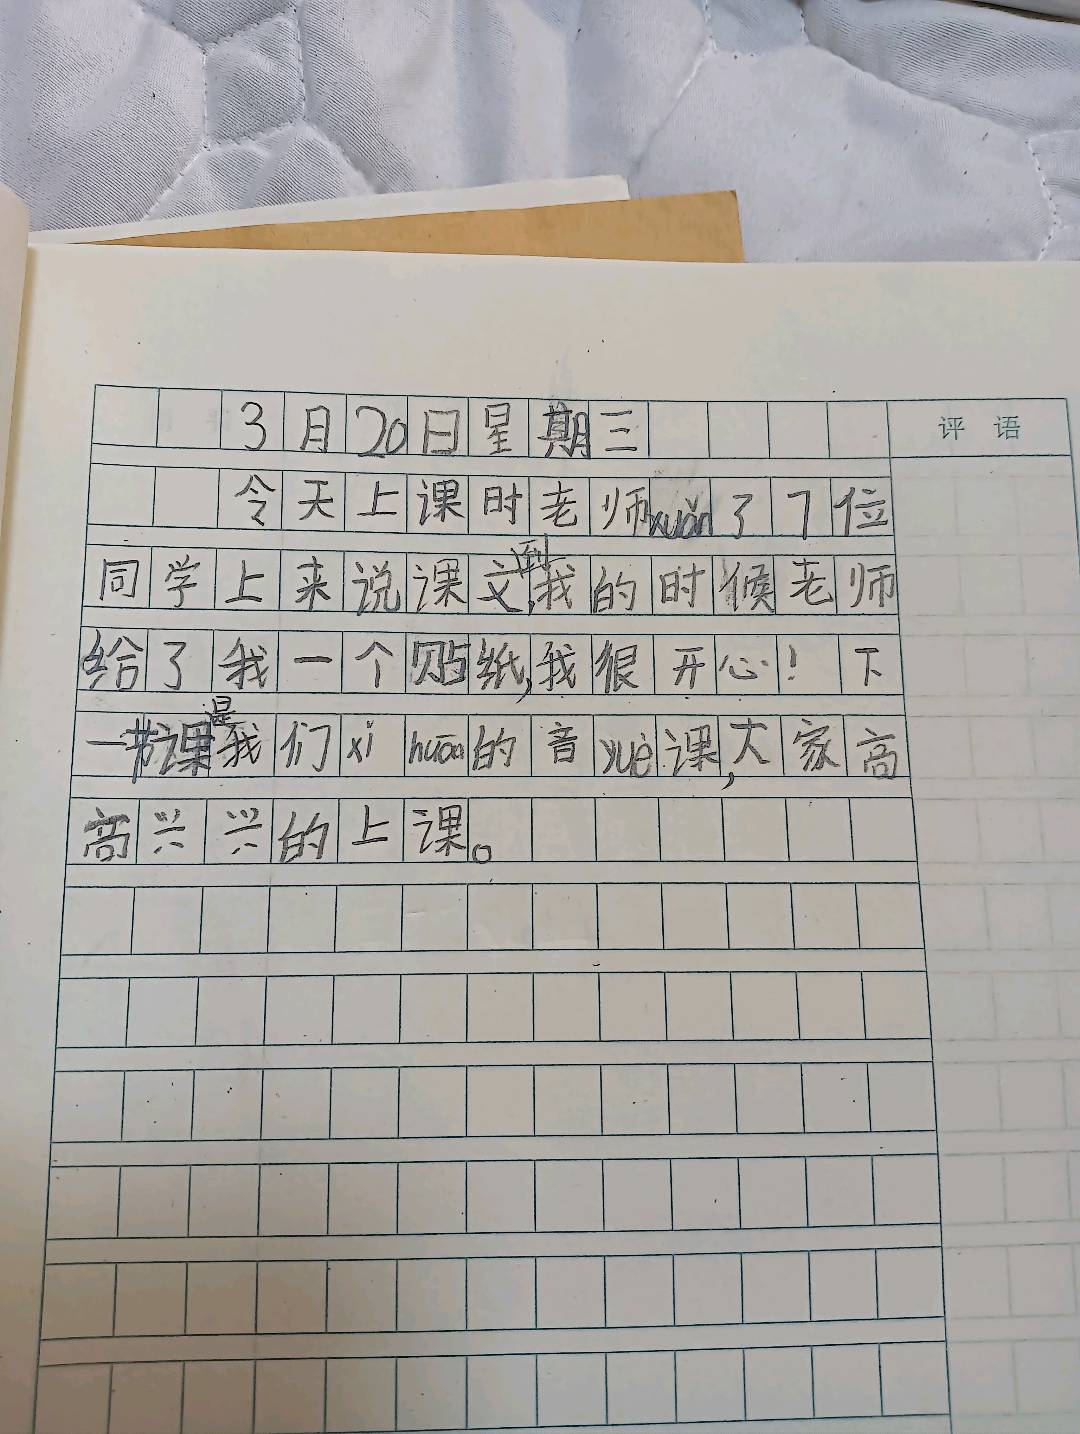 3月20日星期三
评语
今天上课时老师xuǎn了7位
同学上来说课文,到我的时候老师
给了我一个贴纸,我很开心!下
一节课是我们xǐ huāan的音yuè课,大家高
高兴兴的上课。